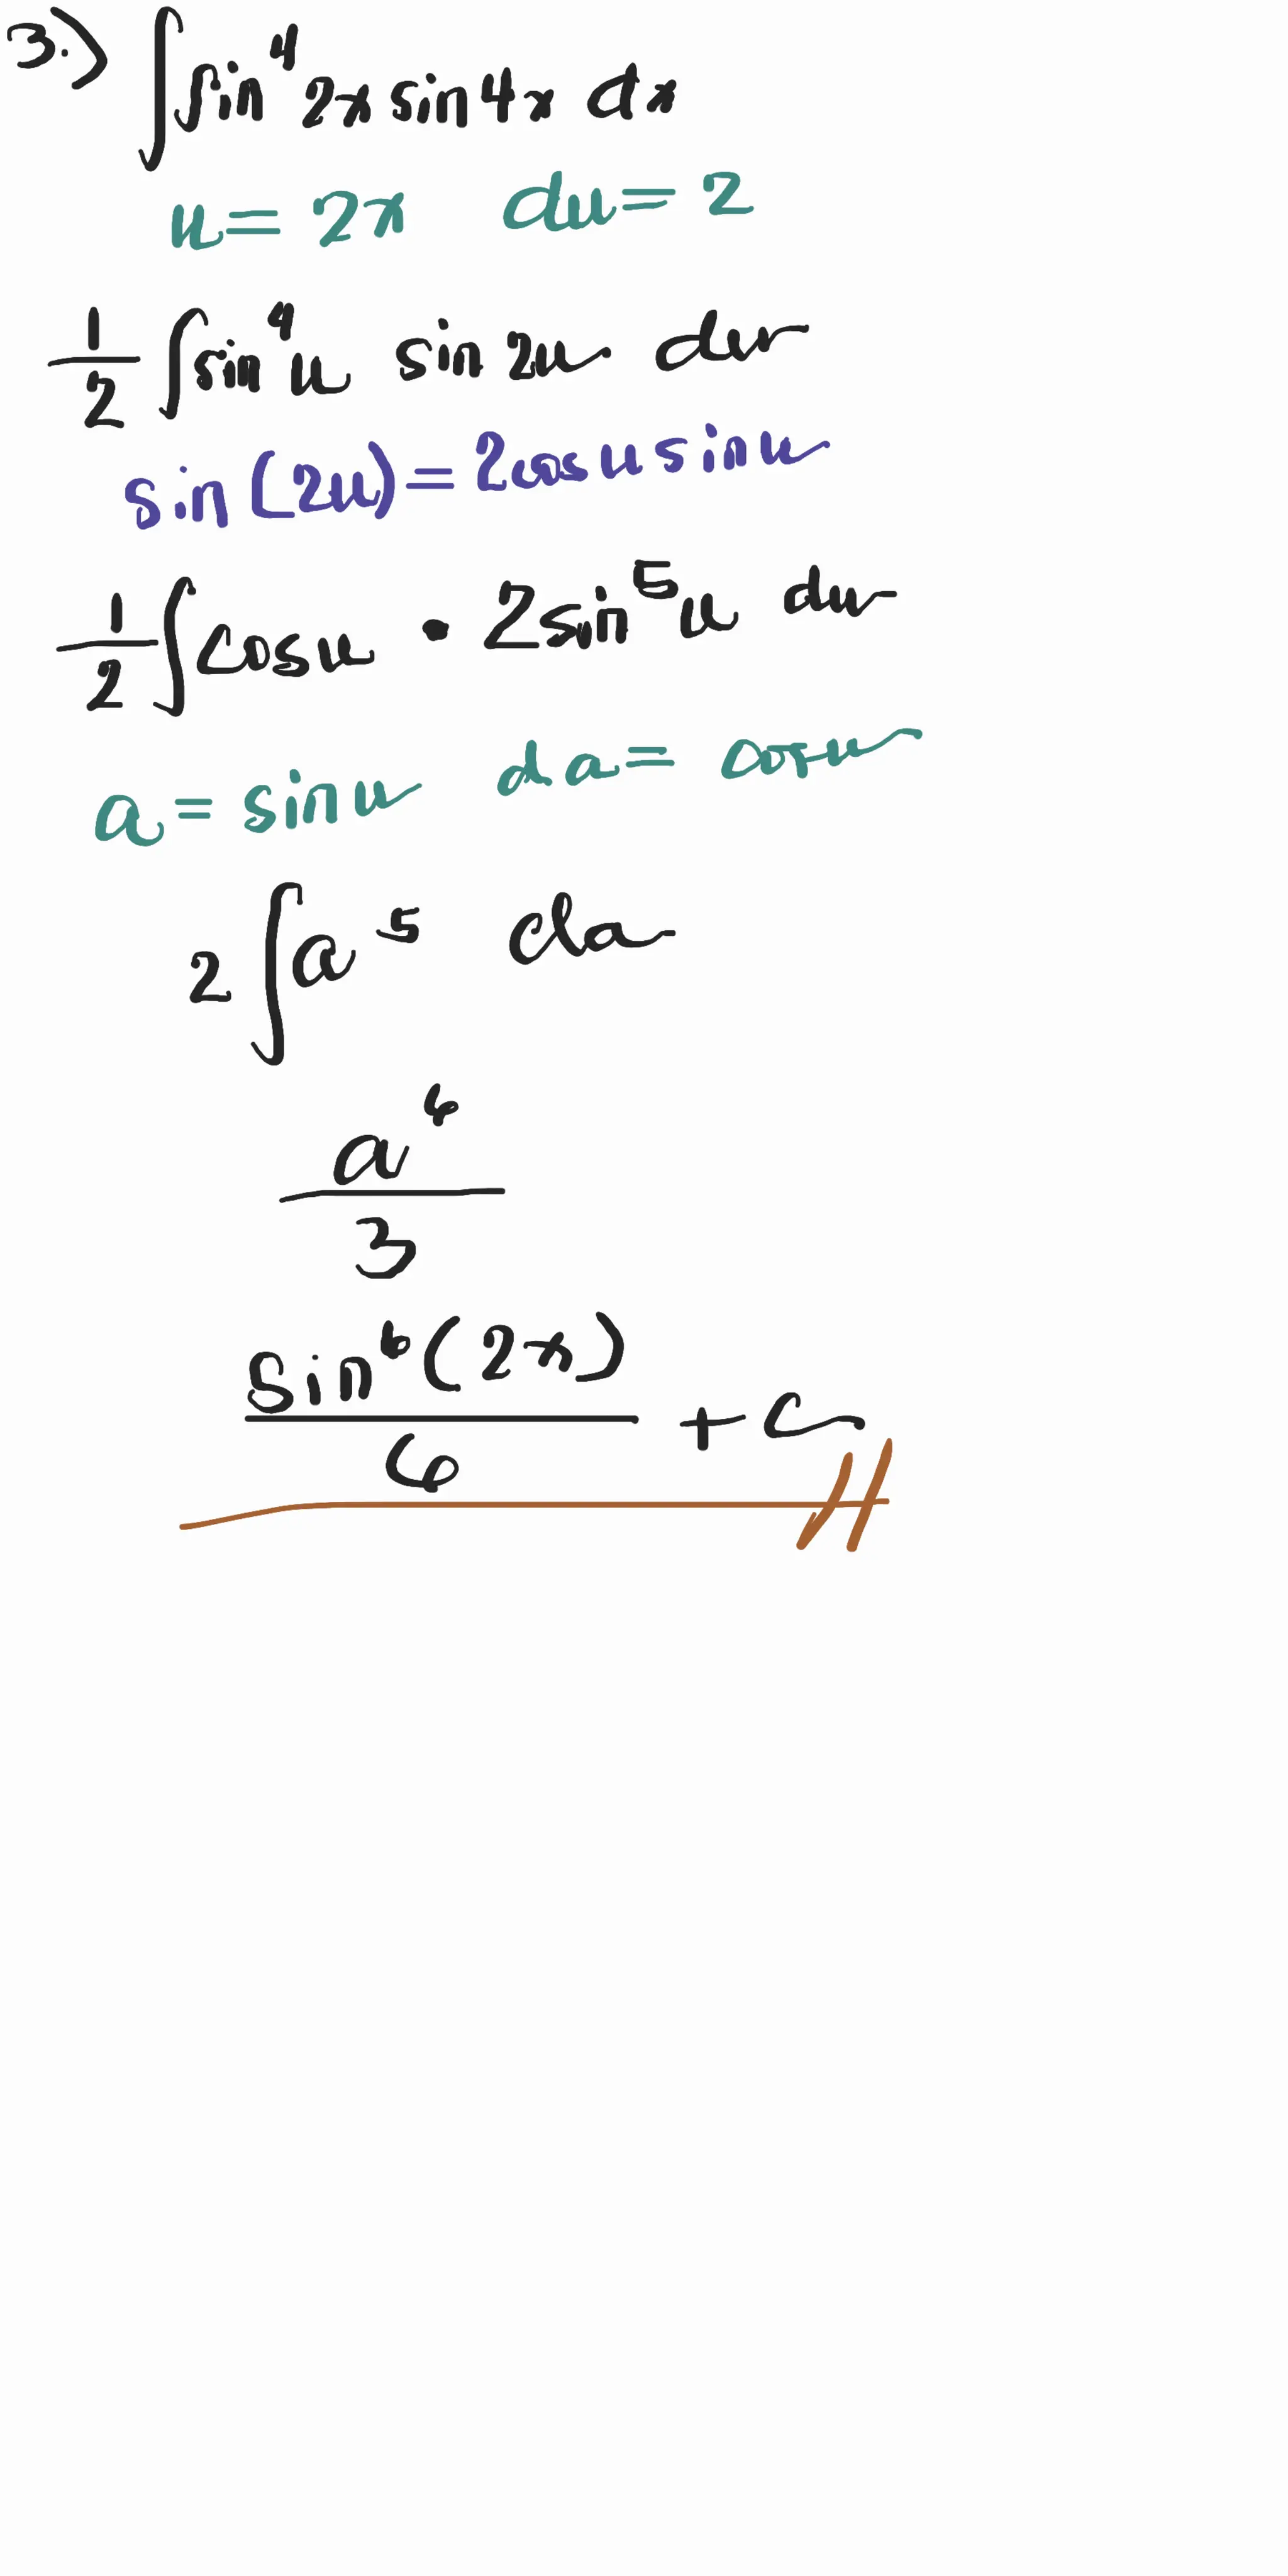 3.) ∫sin⁴2x sin4x dx
u = 2x du = 2
1/2 ∫sin⁴u sin 2u du
sin (2u) = 2cosu sinu
1/2 ∫cosu • 2sin⁵u du
a = sinu da = cosu
2 ∫a⁵ da
a⁶/3
sin⁶(2x)/6 + C